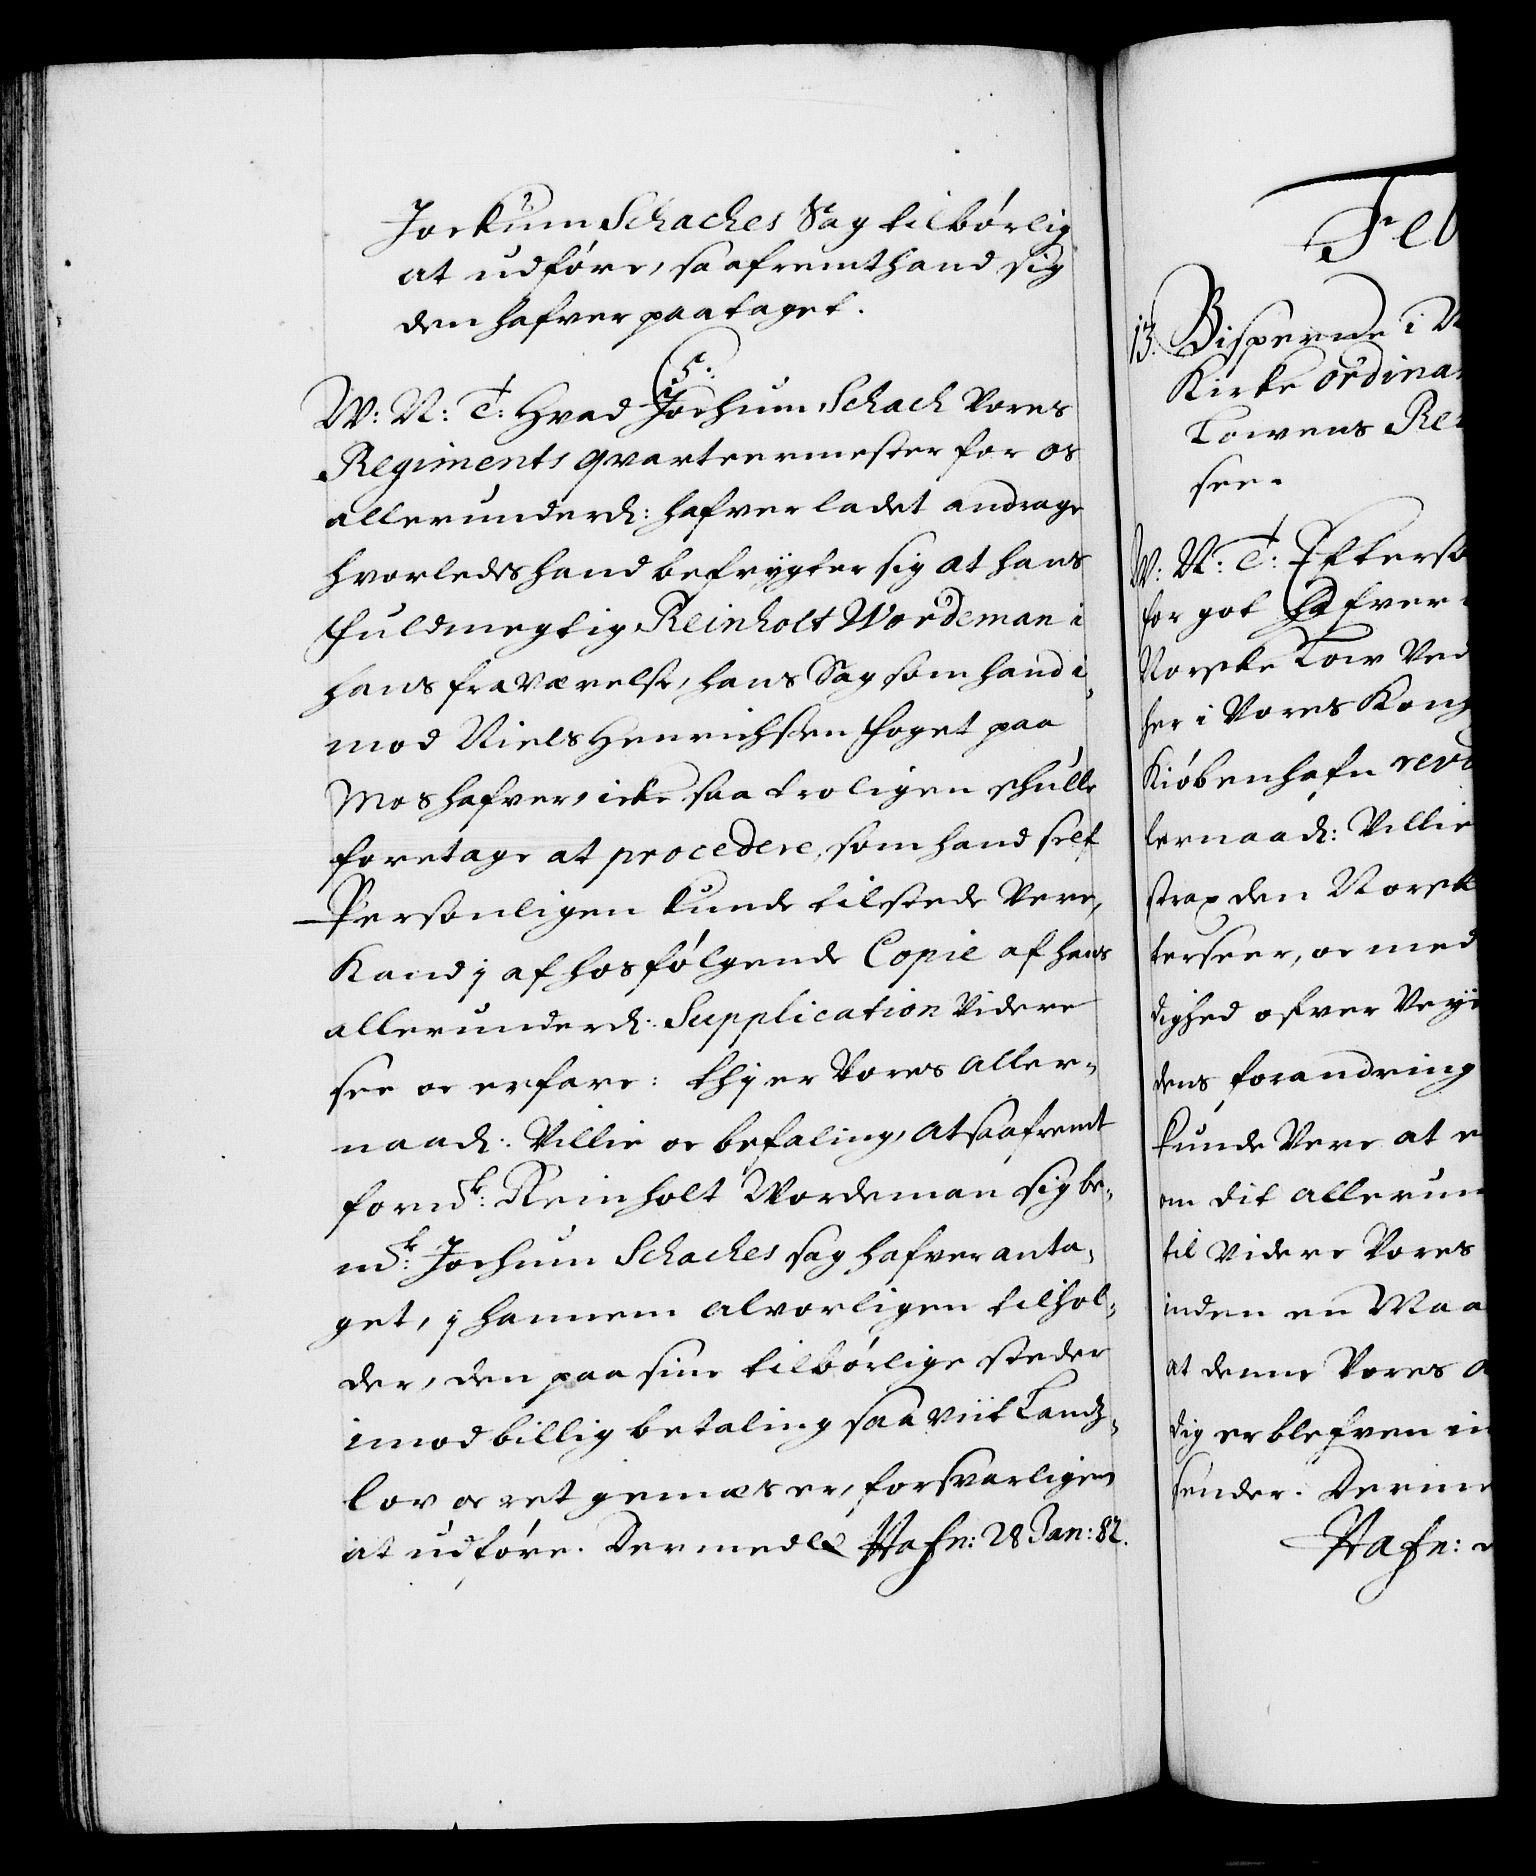 Jockum Schaches Sag tilbørlig
at udføre, saafremt hand sig
den hafver paataget.
C5:
W: N: T: Hvad Jochum Schach Vores
Regiments qvarteermester for os
allerunderd: hafver ladet andrage
hvorledes hand befrygter sig at hans
fuldmegtig Reinholt Wordeman i
hans fraværelse, hans Sag som hand i,
mod Niels Henrichsen foget paa
Mos hafver, icke saa troligen skulle
foretage at procedere, som hand self
Personligen kunde tilstede Vere,
Kand j af hosfølgende Copie af hans
allerunderd: Supplication Videre
see oc erfare: thj er Vores aller-
naad: Villie oc befaling, at saafremt
fornd: Reinholt Wordeman sig be-
md: Jochum Schaches sag hafver anta-
get, j hannem alvorligen tilhol-
der, den paa sine tilbørlige steder
imod billig betaling saa viit Landz-
lov oc ret gemæs er, forsvarligen
at udføre. Dermed &c Hafn: 28 Jan: 82.
Feb
13. Bisperne i N
Kirke ordina
Lowens Re
see.
W: N: T: Efterso
for got hafver
Norske Low Ved
her i Vores Kong
Kiøbenhafn revi
lernaad: Villie
strax den Norsk
terseer, oc med
dighed ofver Veye
dens forandring
kunde Vere at e
en dit allerun
til Videre Vores
inden en Maa
at denne Vores a
dig er blefven in
sender. Derme
Hafn: d